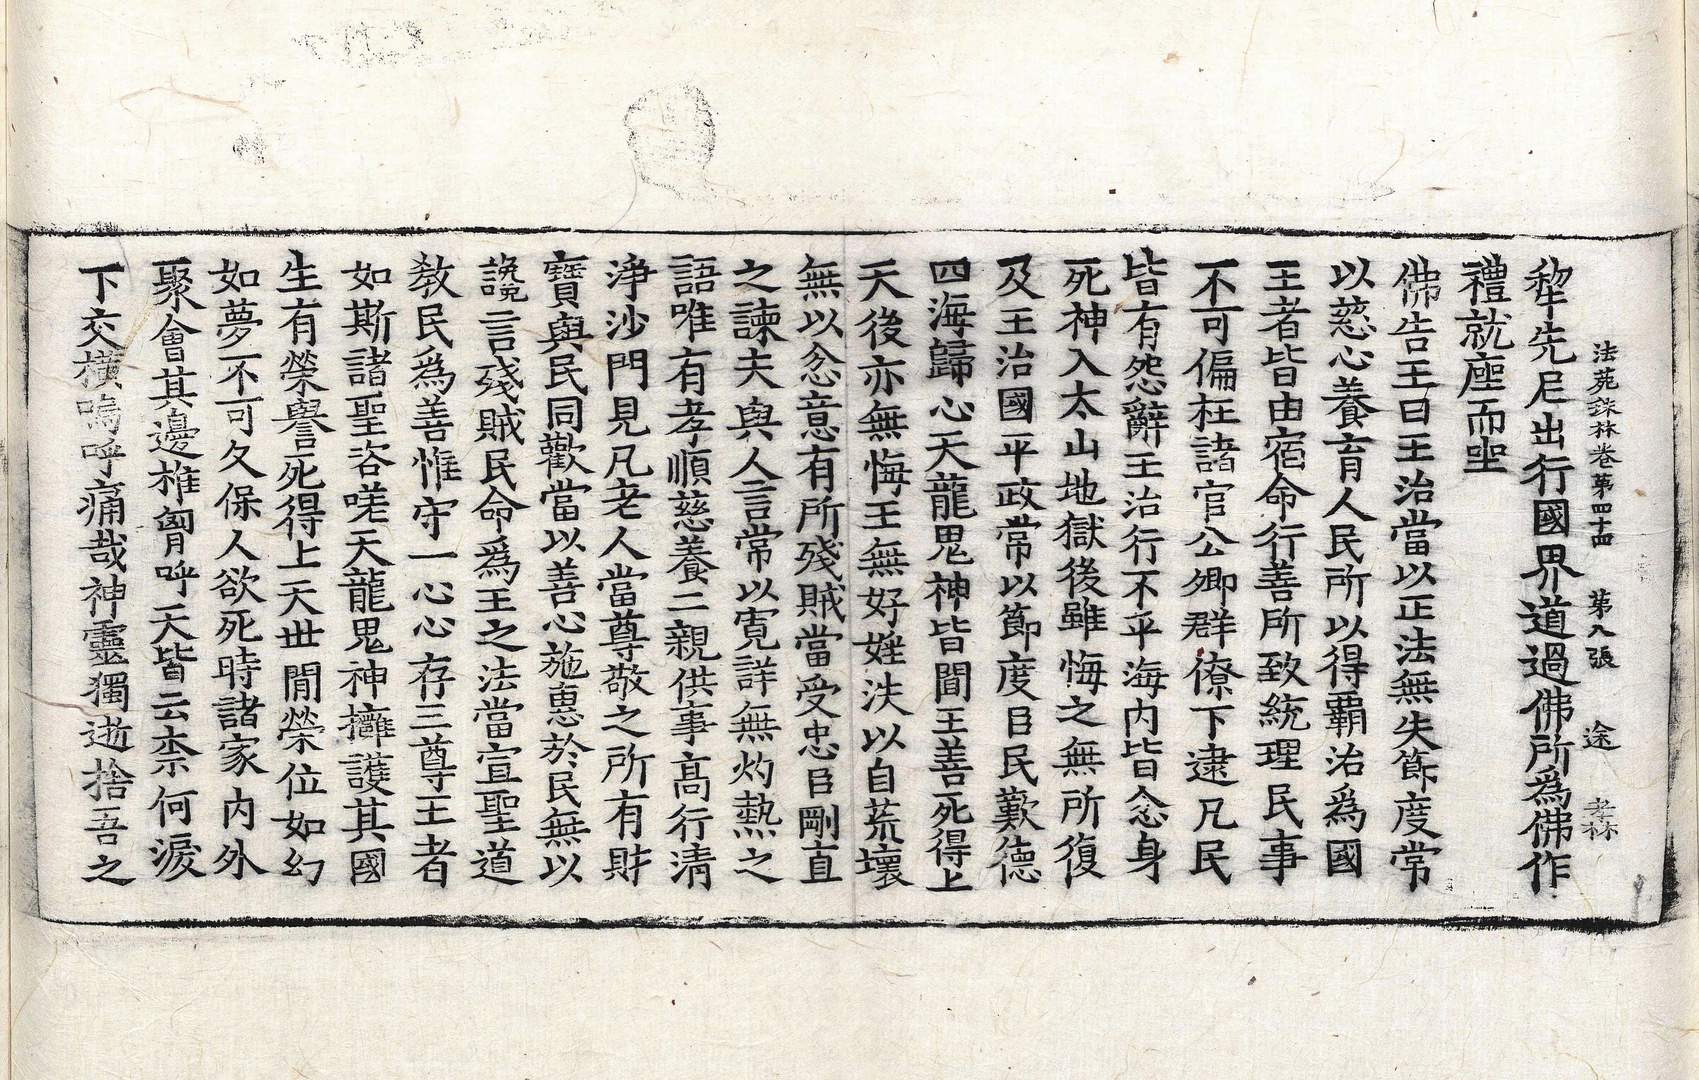 法苑珠林卷第四十四　第八張　途　孝林
犂先尼出行國界道過佛所爲佛作
禮就座而坐
佛告王曰王治當以正法無失節度常
以慈心養育人民所以得覇治爲國
王者皆由宿命行善所致統理民事
不可偏枉諸官公卿群僚下逮凡民
皆有怨辭王治行不平海內皆忿身
死神入太山地獄後雖悔之無所復
及王治國平政常以節度臣民歎德
四海歸心天龍鬼神皆聞王善死得上
天後亦無悔王無好婬泆以自荒壞
無以忿意有所殘賊當受忠臣剛直
之諫夫與人言常以寬詳無灼熱之
語唯有孝順慈養二親供事高行清
淨沙門見凡老人當尊敬之所有財
寶與民同歡當以善心施惠於民無以
讒言殘賊民命爲王之法當宣聖道
教民爲善惟守一心心存三尊王者
如斯諸聖咨嗟天龍鬼神擁護其國
生有榮譽死得上天世間榮位如幻
如夢不可久保人欲死時諸家內外
聚會其邊椎匈呼天皆云柰何淚
下交橫嗚呼痛哉神靈獨逝捨吾之